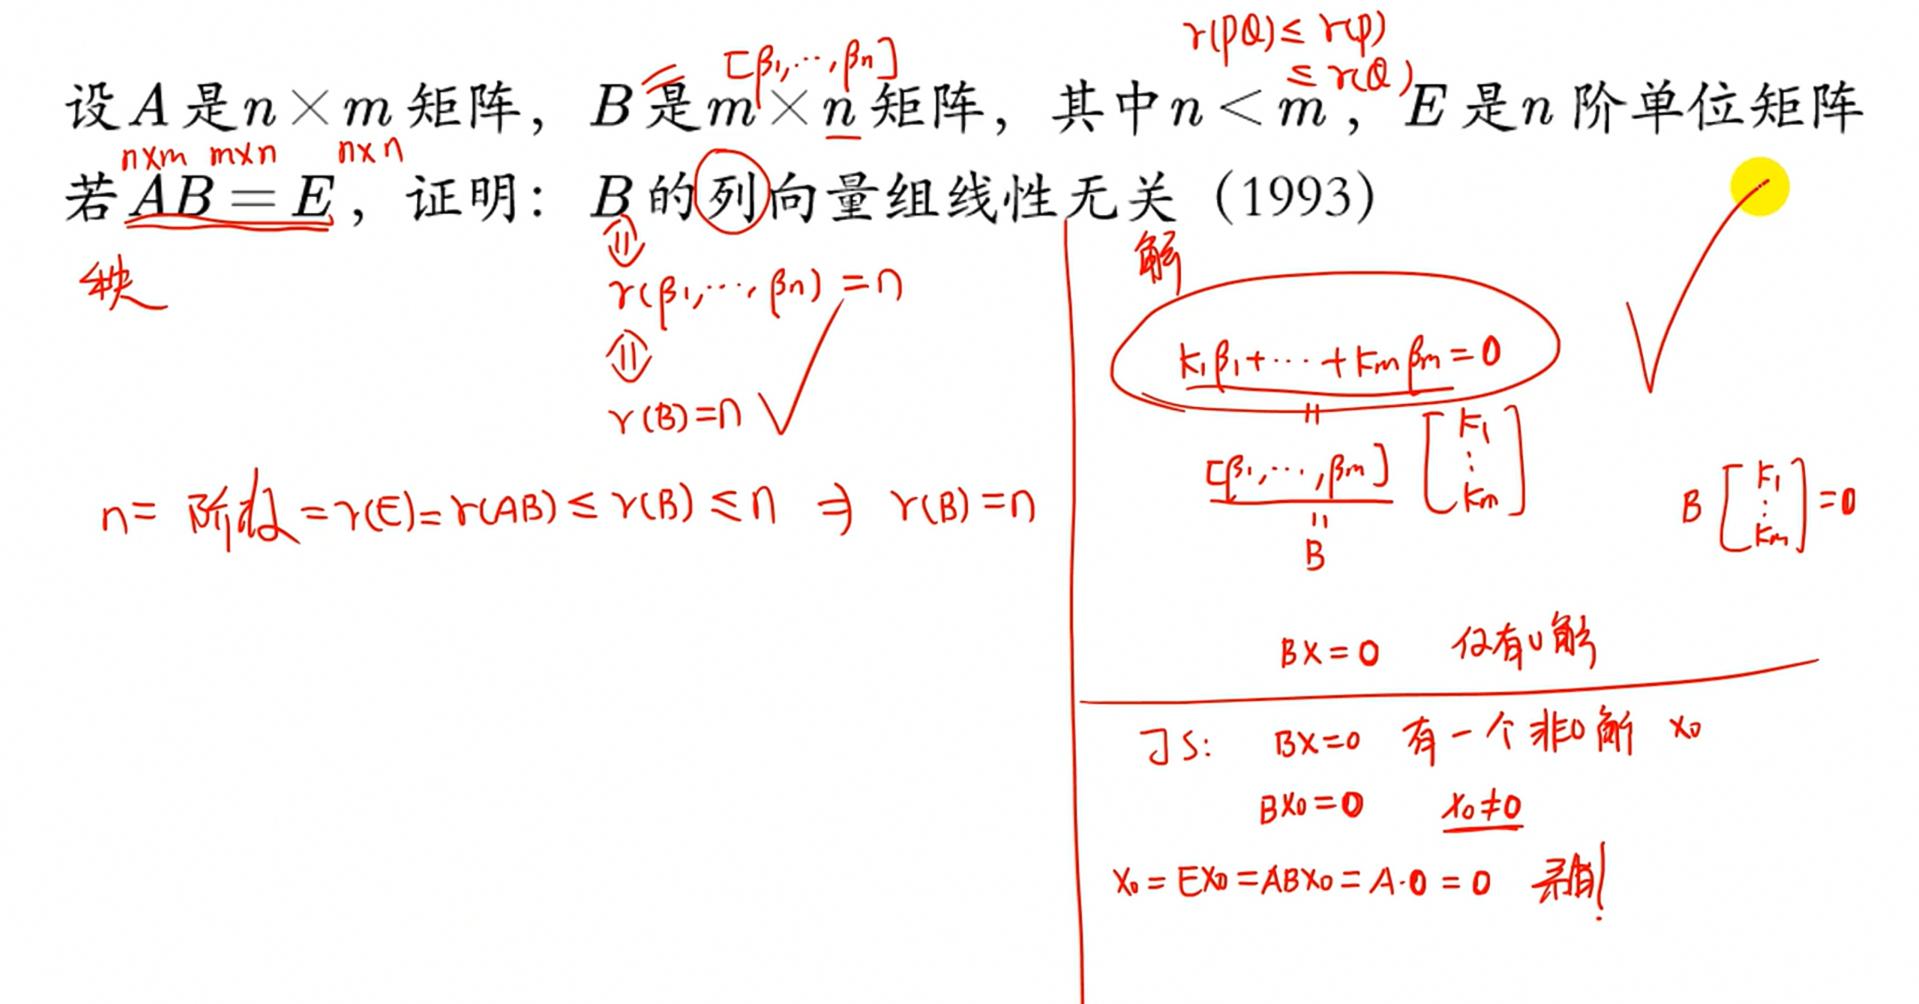 r(PQ) ≤ r(P)
≤ r(Q)
[β₁,⋯,βₙ]
设A是n×m矩阵，B是m×n矩阵，其中n<m，E是n阶单位矩阵
n×m m×n n×n
若AB=E，证明：B的列向量组线性无关（1993）
秩
r(β₁,⋯,βₙ)=n
r(B)=n √
n= 阶数=r(E)=r(AB)≤r(B)≤n ⇒ r(B)=n
解
k₁β₁+⋯+kₘβₘ=0
=
[β₁,⋯,βₘ] [k₁ ⋮ kₘ]
=
B
B [k₁ ⋮ kₘ] =0
BX=0 仅有0解
BX=0 有一个非0解 X₀
BX₀=0 X₀≠0
X₀=EX₀=ABX₀=A·0=0 矛盾!